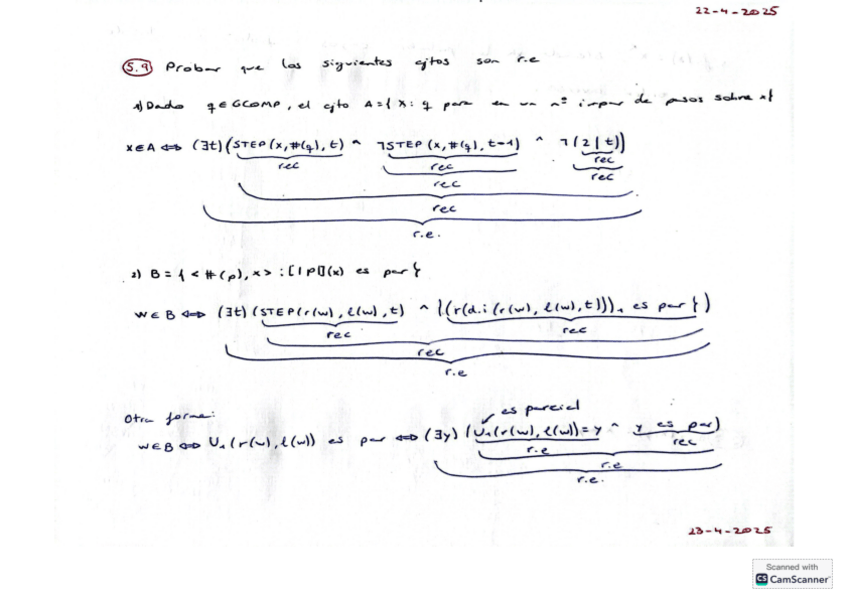 22-4-2025
5.9 Probar que los siguientes cjtos son r.e
1) Dado q ∈ GCOMP, el cjto A = { x : q para en un nº impar de pasos sobre x }
x ∈ A ⇔ (∃t) (STEP (x, #(q), t) ^ ¬STEP (x, #(q), t-1) ^ ¬(2|t))
rec rec rec
rec rec
rec
r.e.
2) B = { < #(p), x > : [|p|](x) es par }
w ∈ B ⇔ (∃t) (STEP(r(w), l(w), t) ^ {(r(d.i (r(w), l(w), t)))₁ es par})
rec rec
rec
r.e
Otra forma:
es parcial
w ∈ B ⇔ U₁(r(w), l(w)) es par ⇔ (∃y) (U₁(r(w), l(w)) = y ^ y es par)
r.e rec
r.e
r.e.
23-4-2025
Scanned with
CS CamScanner